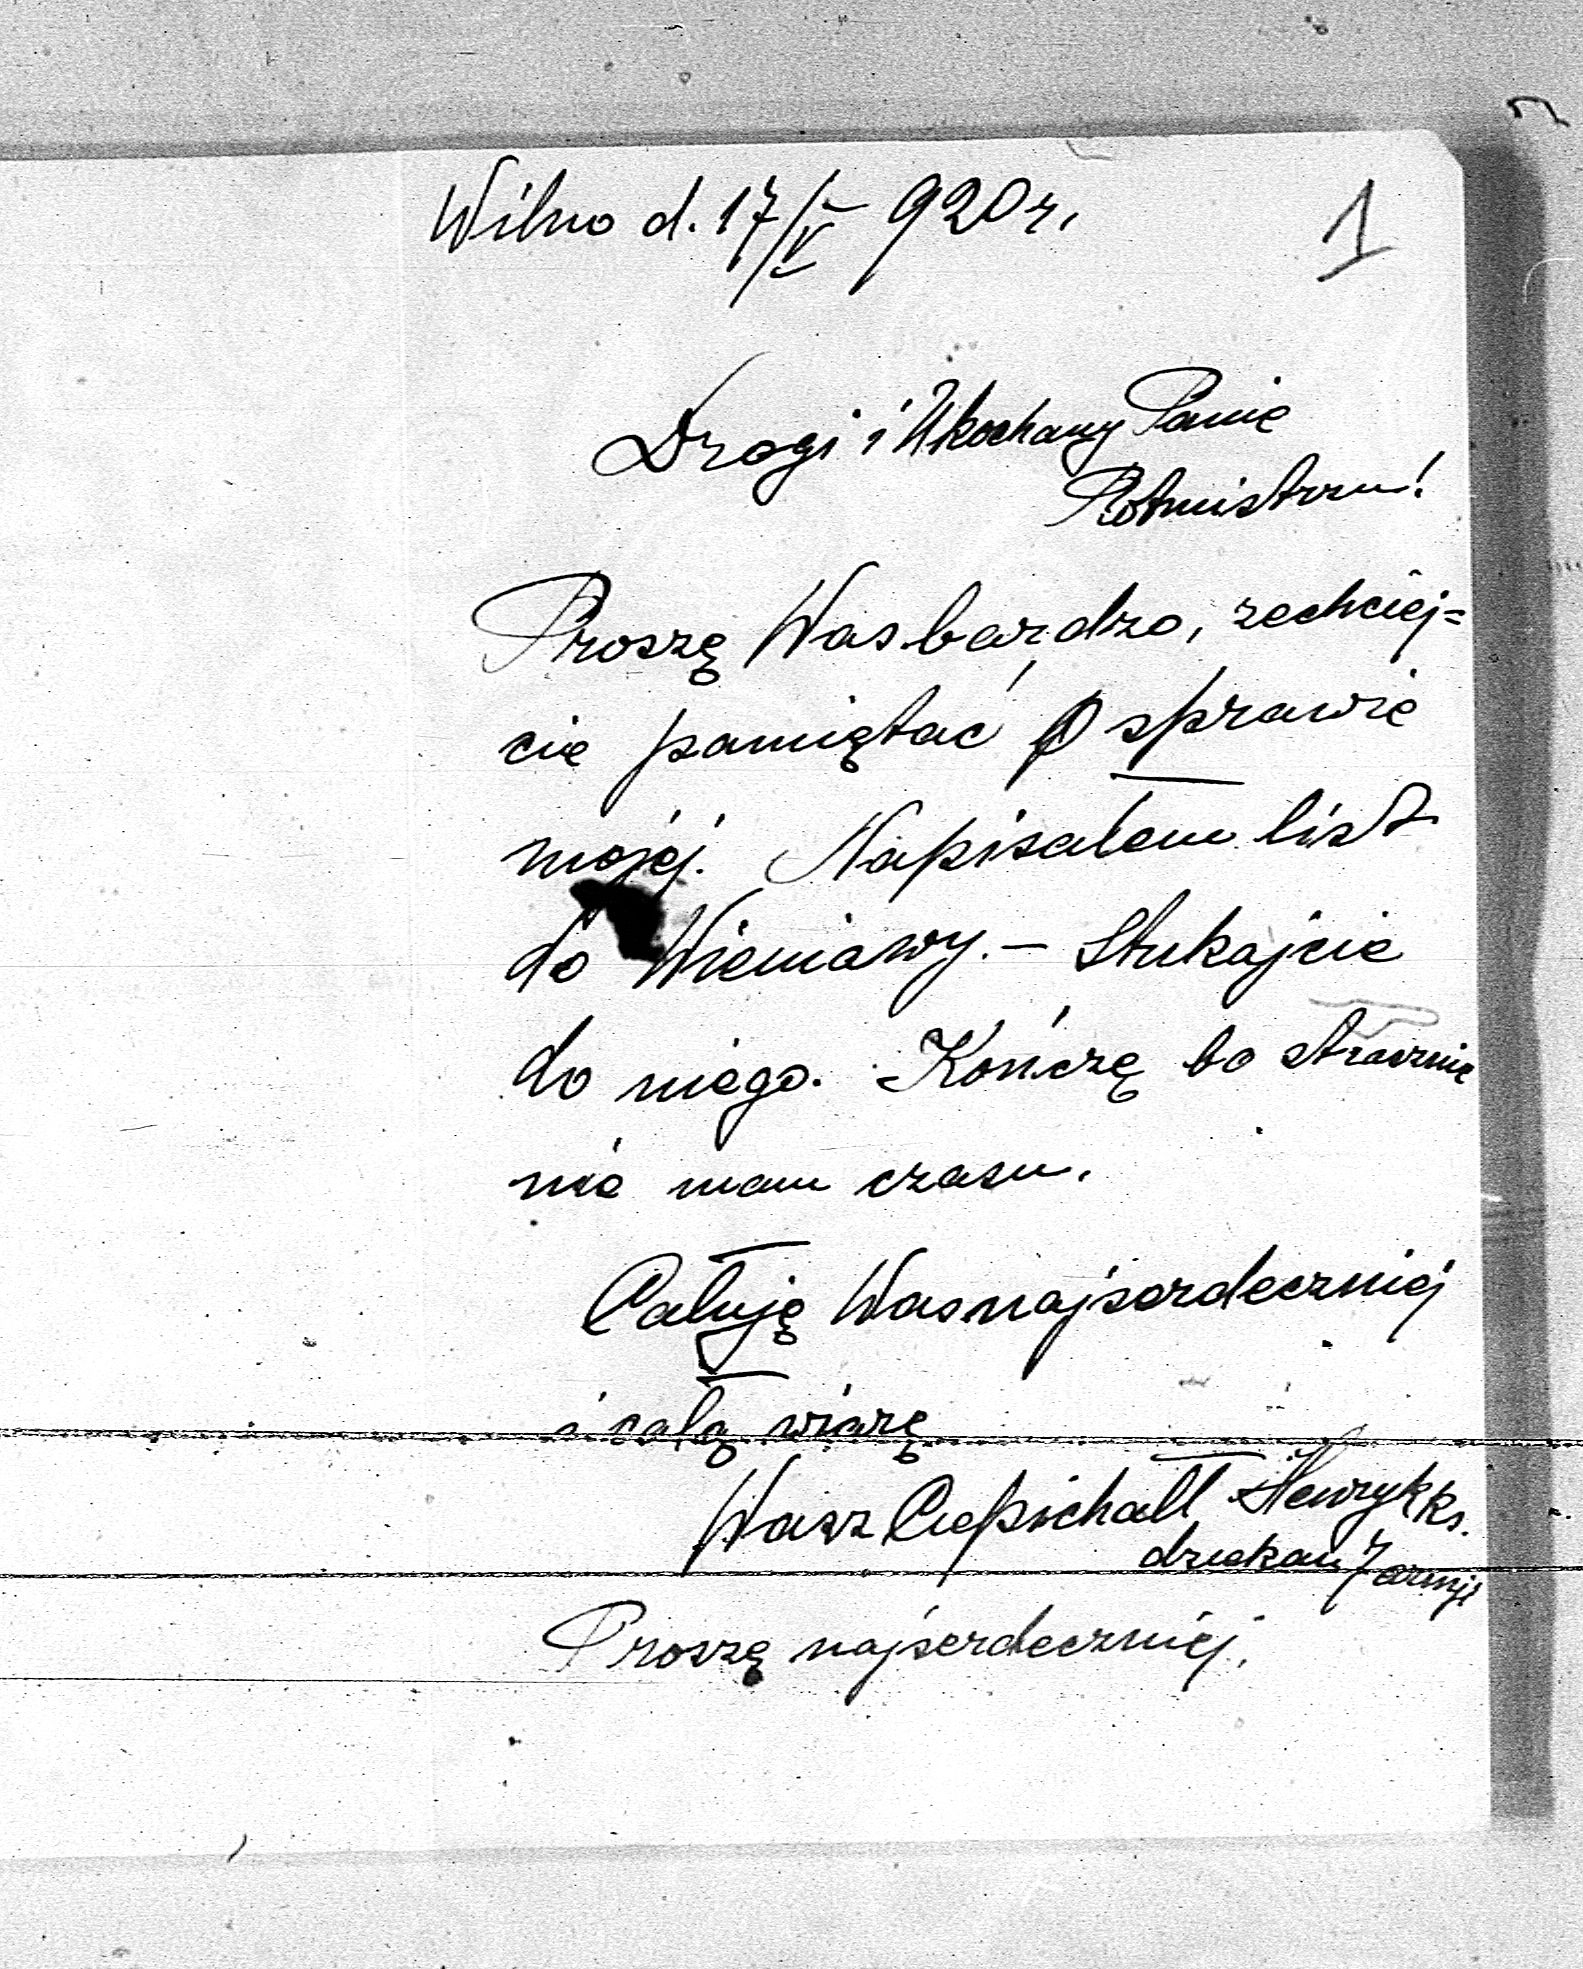 Wilno d. 17/V 920 r.
1
Drogi i Ukochany Panie
Rotmistrzu!
Proszę Was bardzo, zechciej=
cie pamiętać o sprawie
mojej. Napisałem list
do Wieniawy. – Stukajcie
do niego. Kończę bo strasznie
nie mam czasu.
Całuję Was najserdeczniej
i całą wiarę
Wasz Ciepichall Henryk ks.
dziekan 7 armji
Proszę najserdeczniej.